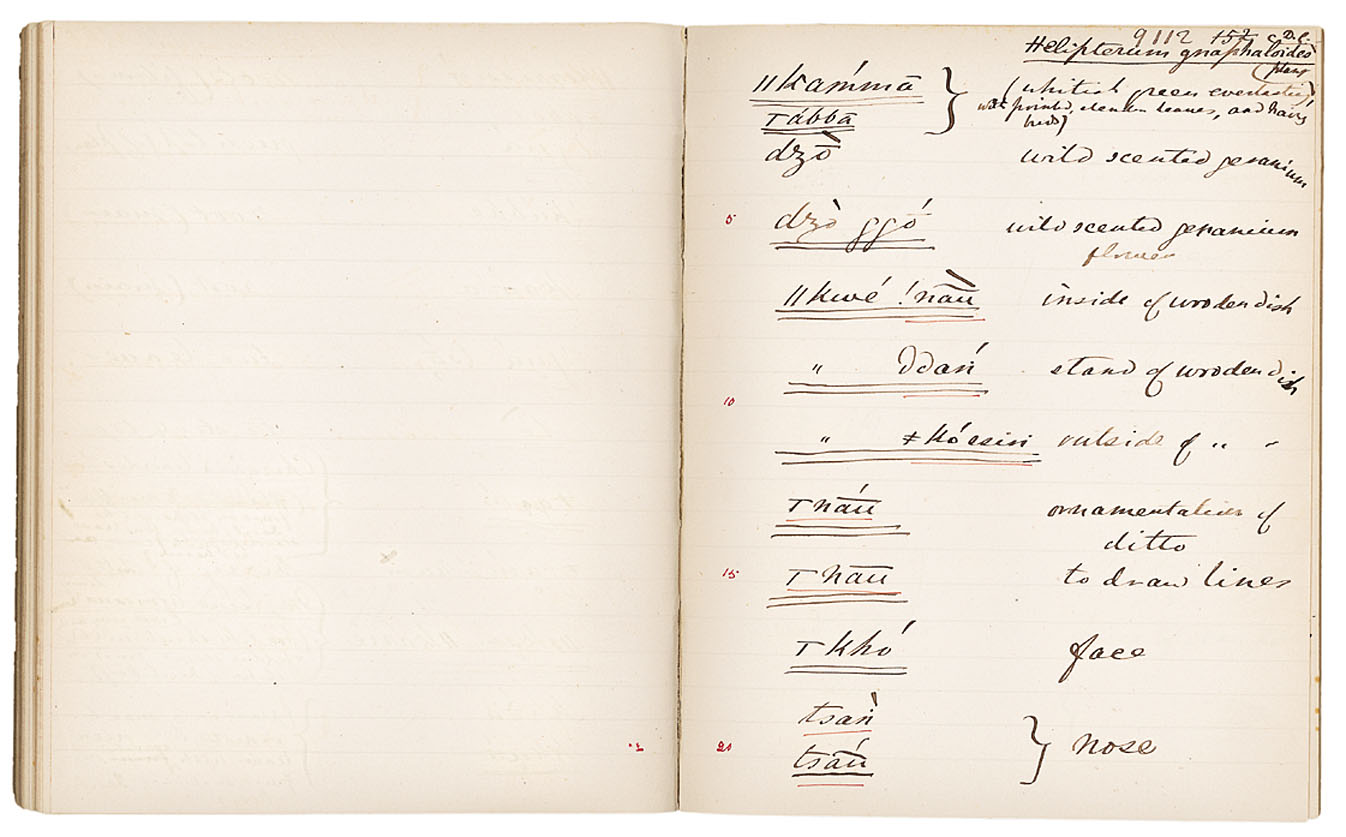 9112 152 C.D.C.
Helipterum gnaphaloides
ǁkaḿmā } (whitish green everlasting plant
Tábbā with pointed, slender leaves, and hairy
buds)
dzò̄ wild scented geranium
5 dzò ggó wild scented geranium
flower
ǁkwé !nàū inside of wooden dish
" ʘʘań stand of wooden dish
10
" ǂkóesin outside of " "
Tnáū ornamentation of
ditto
15 Tnāū to draw lines
Tkhó face
tsaǹ
20 tsáū } nose